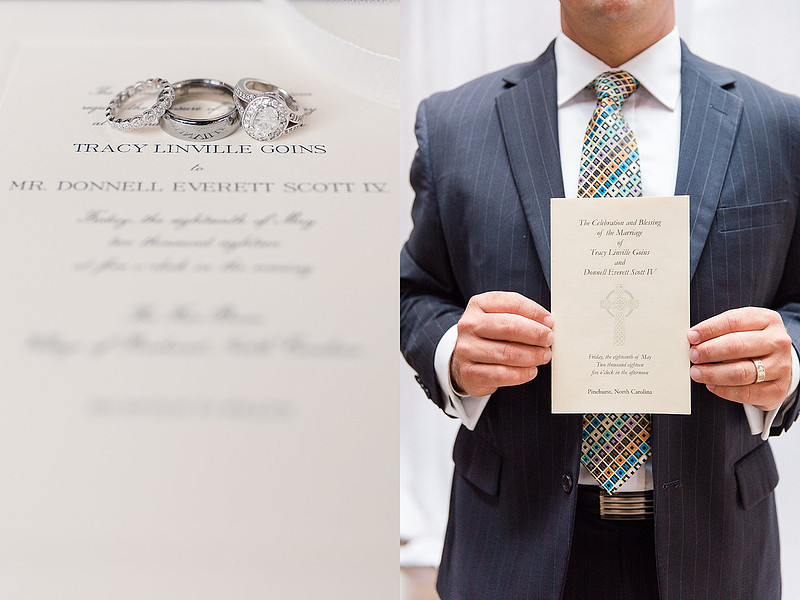 TRACY LINVILLE GOINS
to
MR. DONNELL EVERETT SCOTT IV
Friday, the eighteenth of May
two thousand eighteen
at five o'clock in the evening
The Celebration and Blessing
of the Marriage
of
Tracy Linville Goins
and
Donnell Everett Scott IV
Friday, the eighteenth of May
Two thousand eighteen
five o'clock in the afternoon
Pinehurst, North Carolina